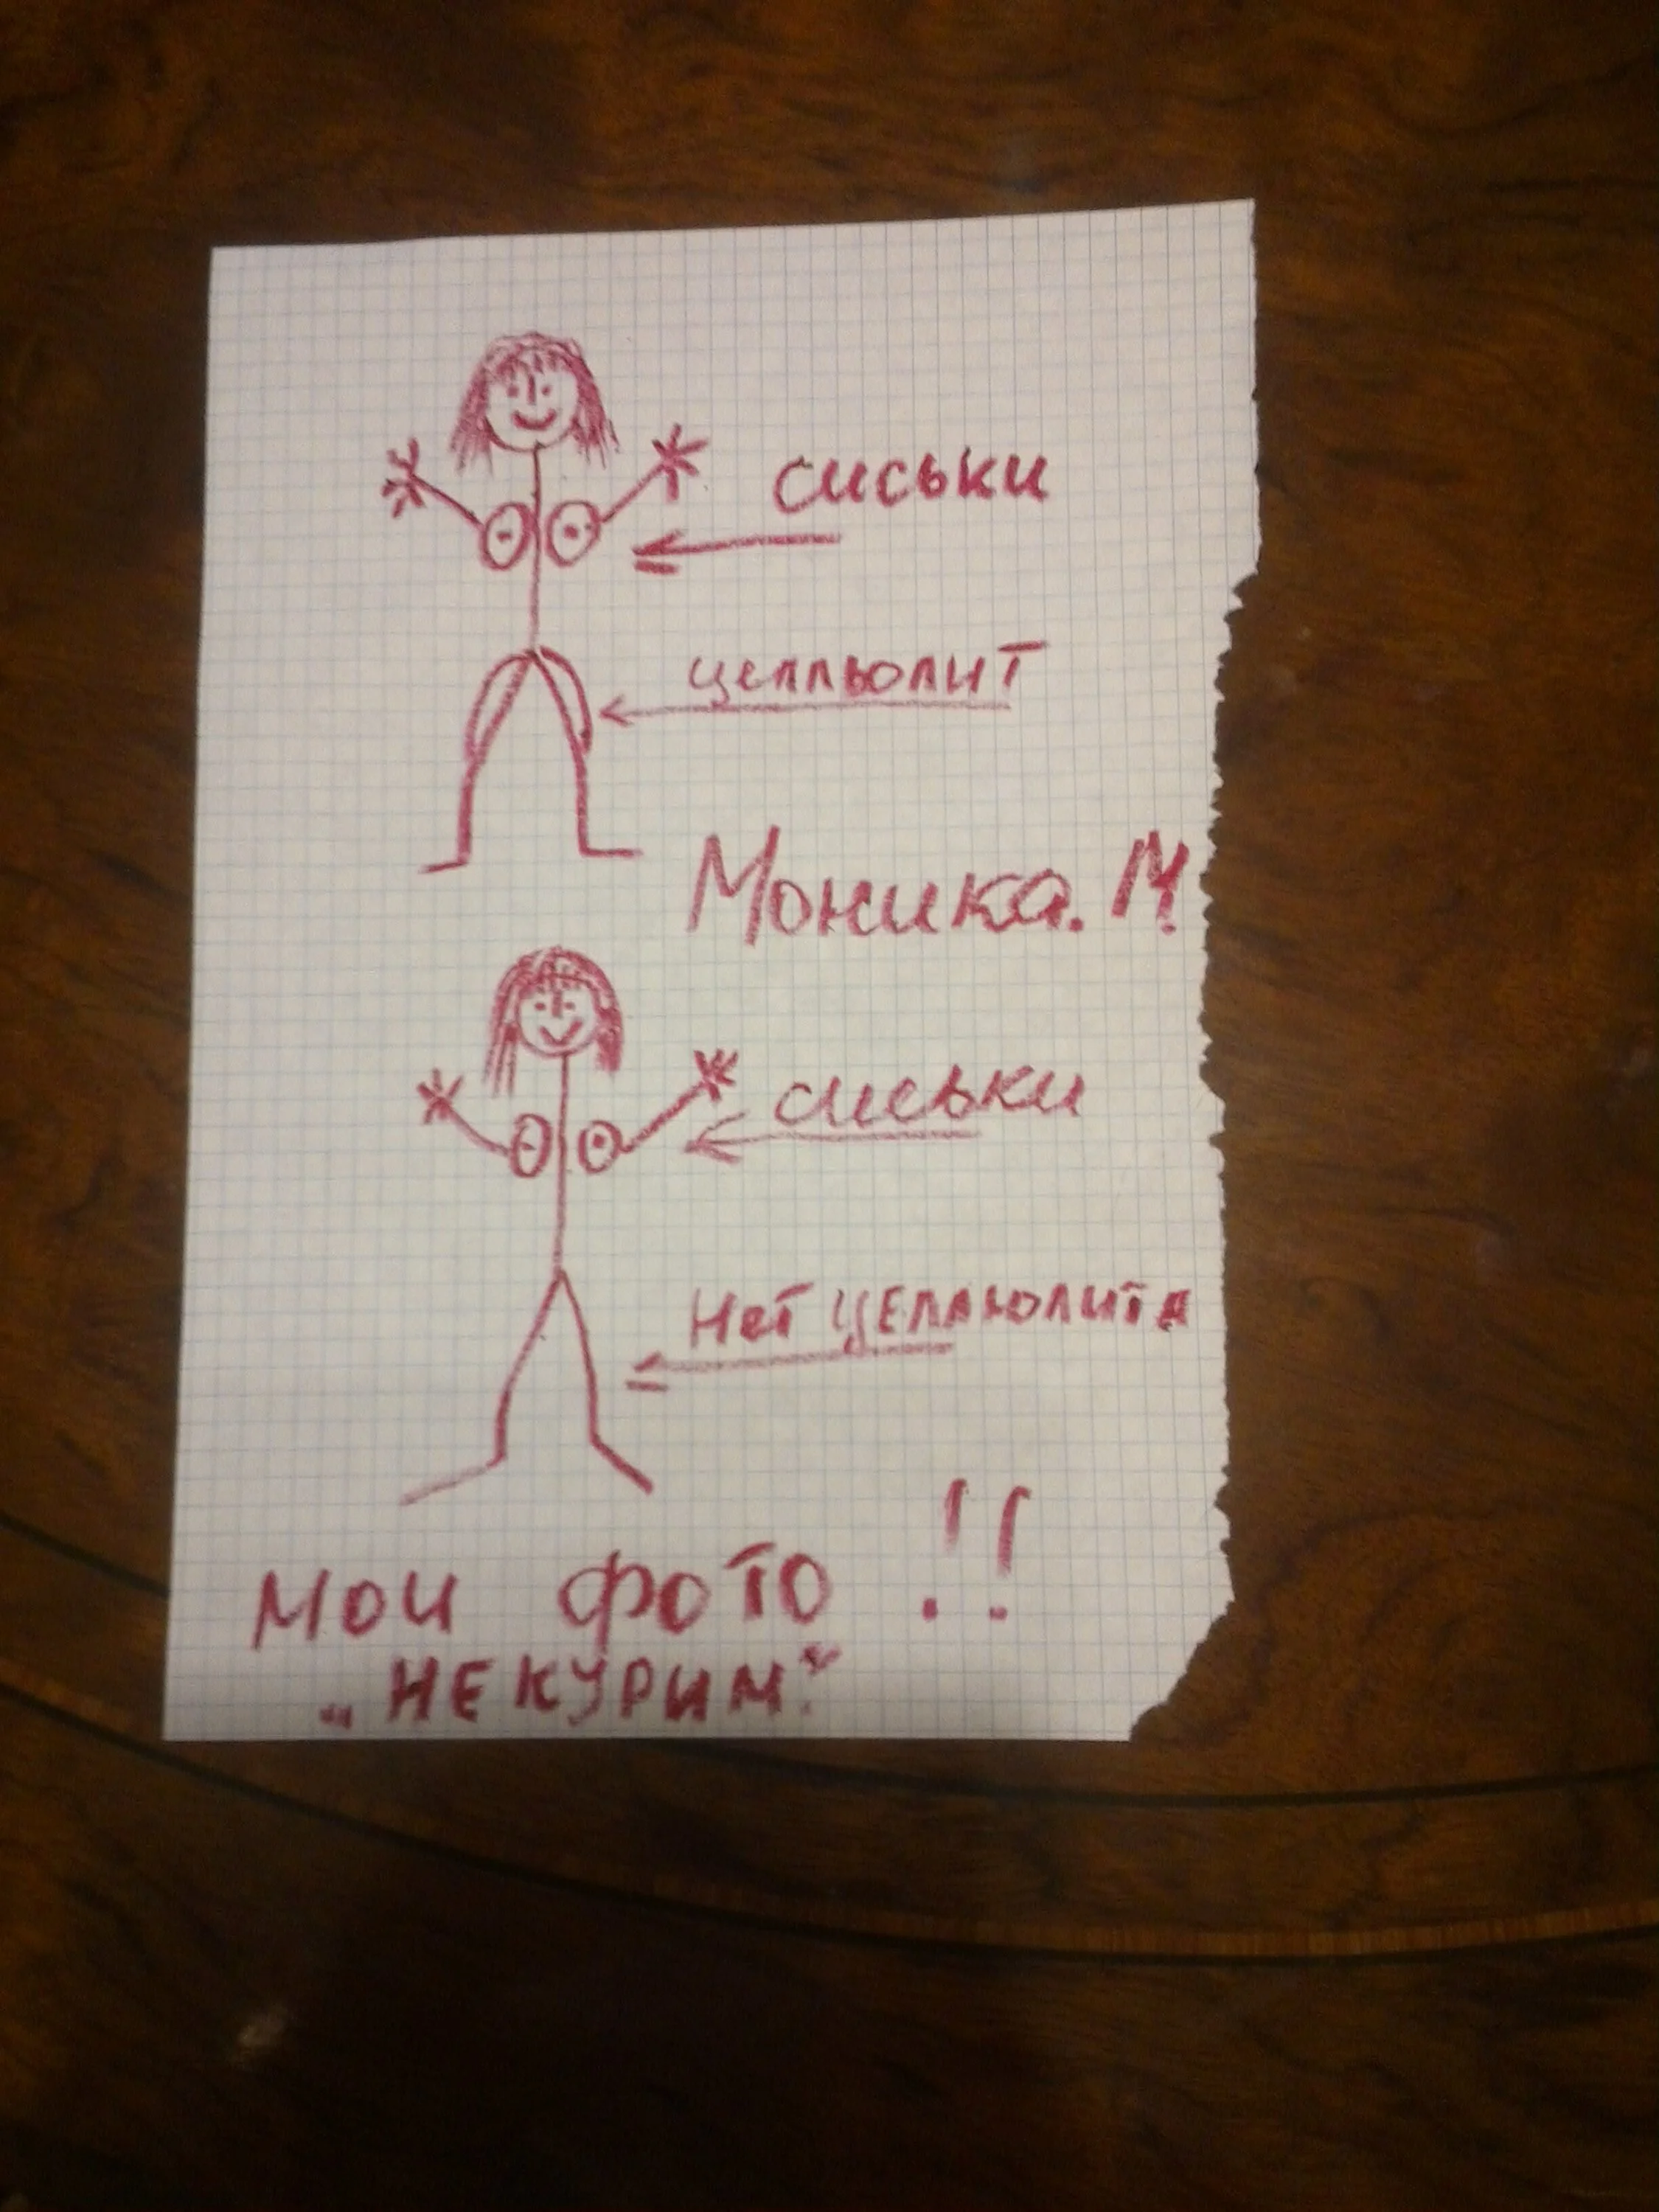 сиськи
целльолит
Моника. М
сиськи
Нет целлюлита
мои фото !!
„НЕКУРИМ"